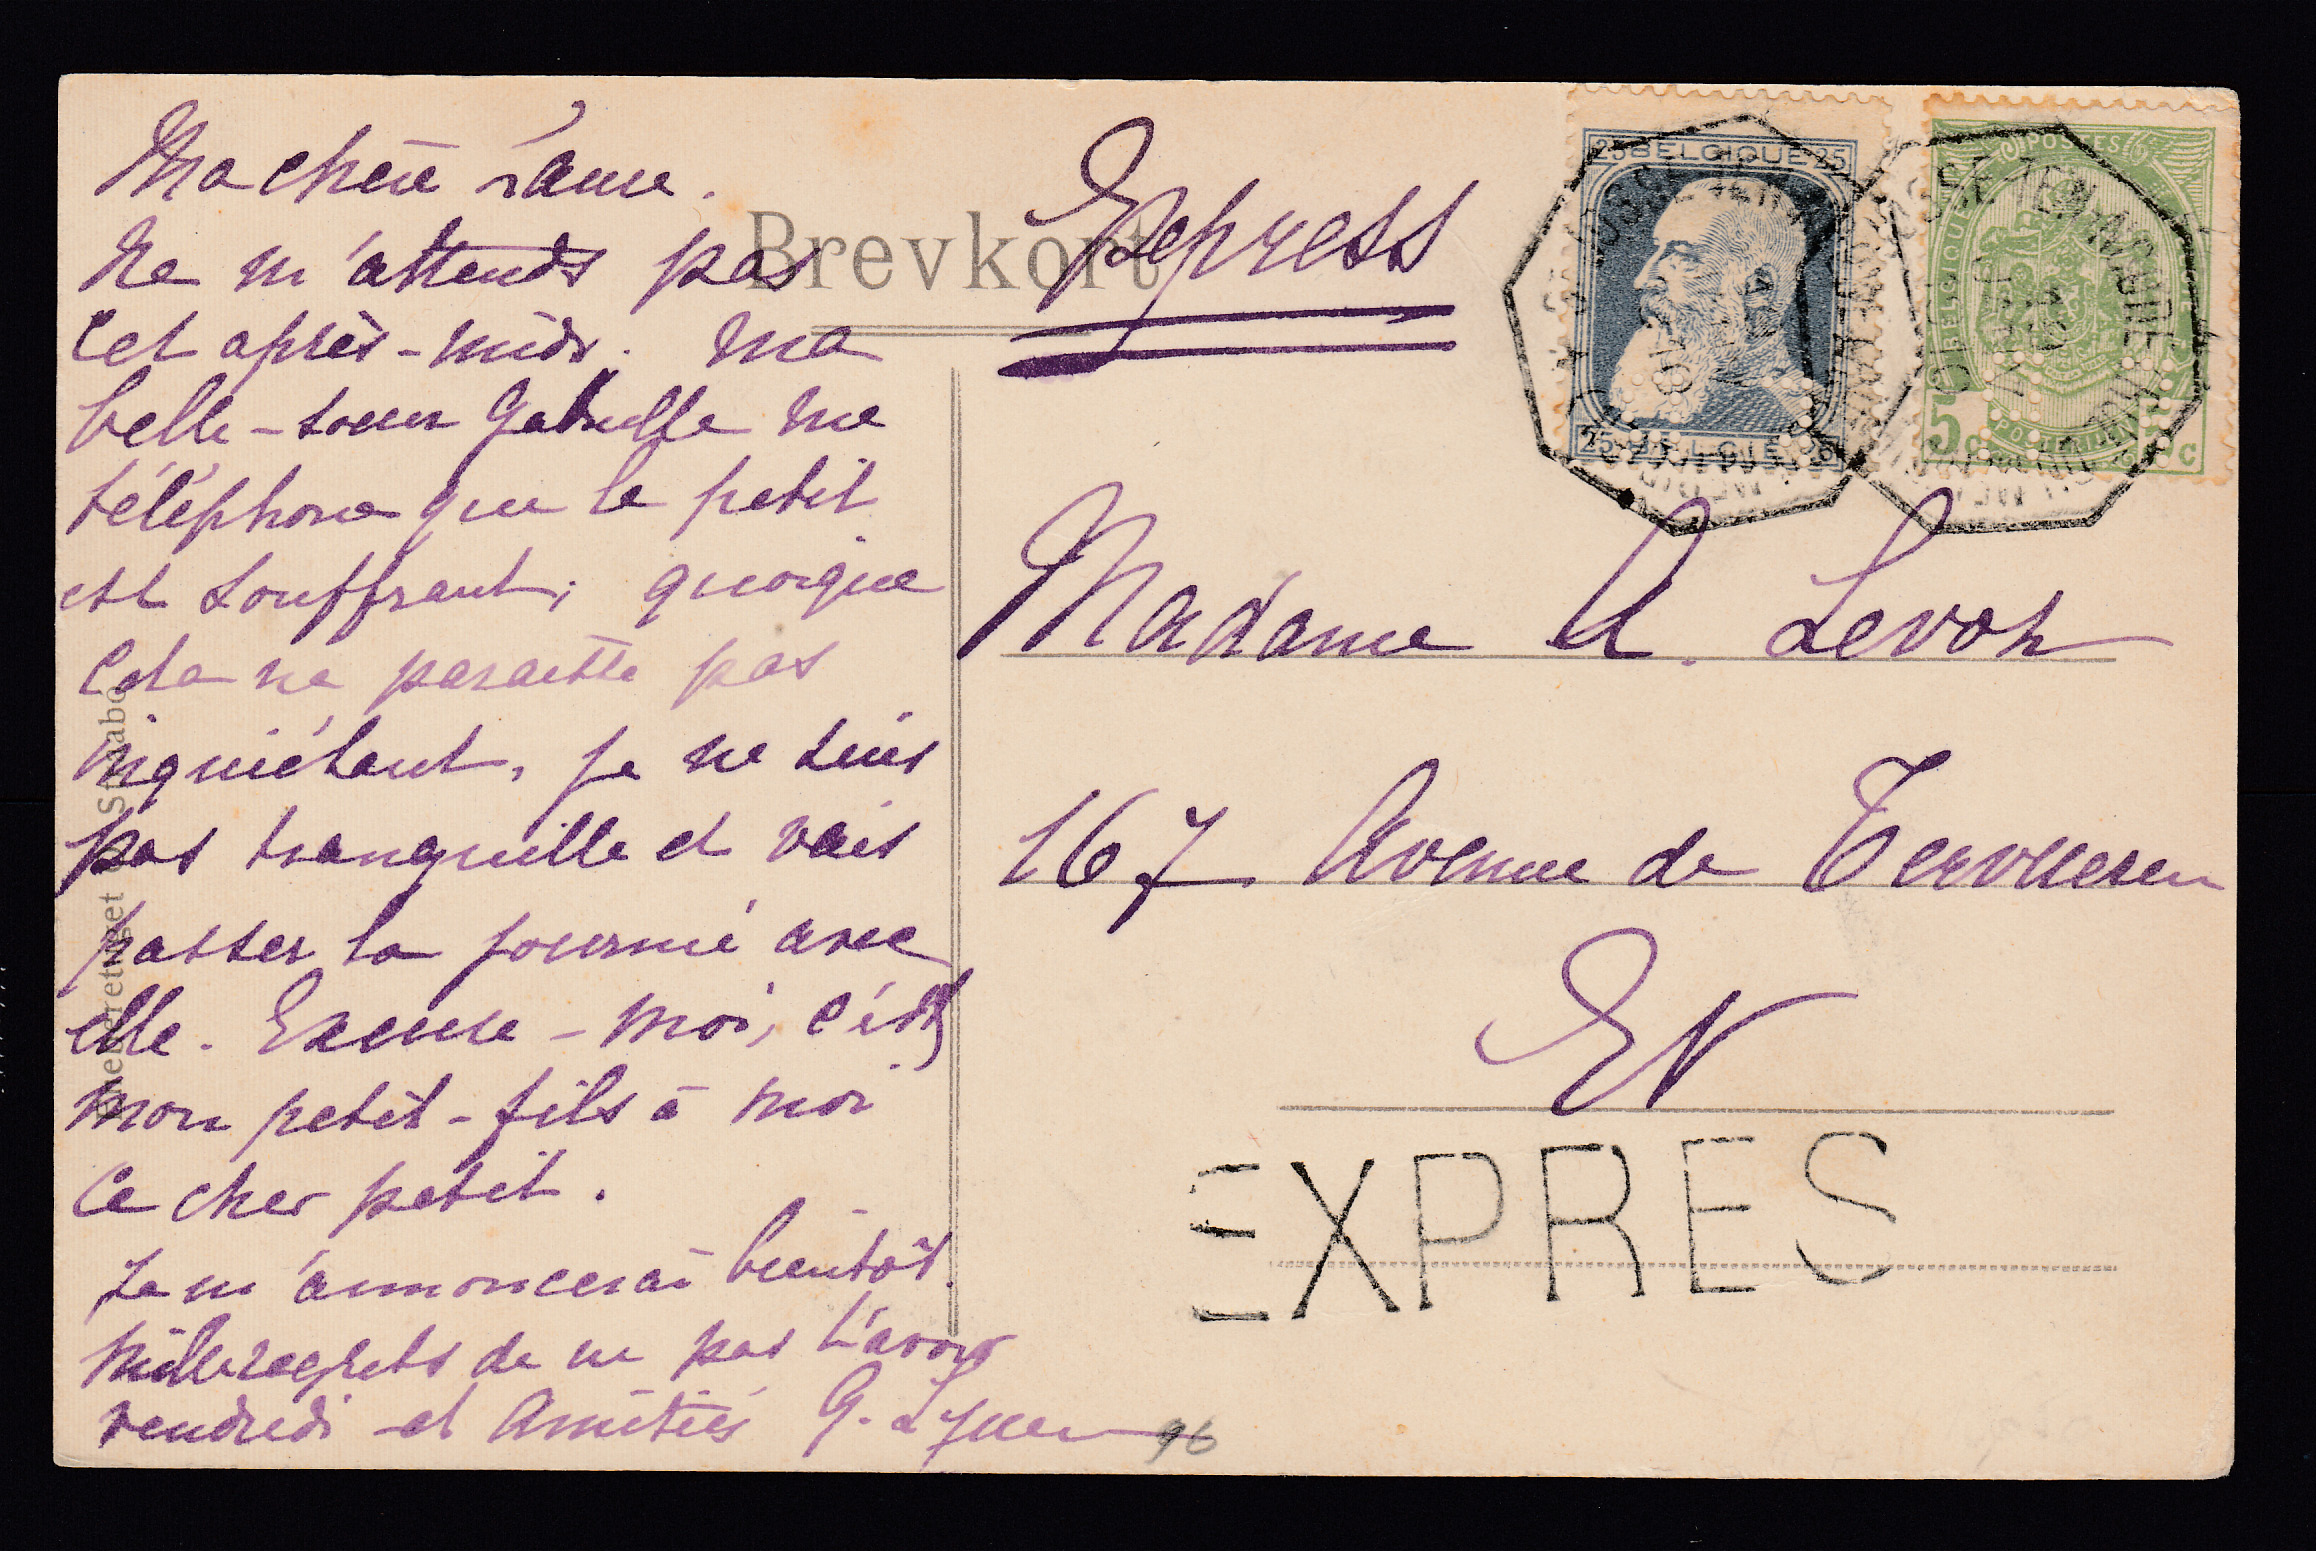 Ma chère
Ne m'attends pas
cet après-midi. Ma
belle-soeur Gabrielle me
téléphone que le petit
est souffrant; quoique
cela ne paraisse pas
inquiétant, je ne suis
pas tranquille et vais
passer la journée avec
elle. Excuse-moi, c'est
mon petit-fils à moi
ce cher petit.
Je m'annoncerai bientôt.
Mille regrets de ne pas t'avoir
vendredi et Amitiés G.
96
Brevkort
Eneberettiget
Express
25 BELGIQUE 25
25 BELGIË 25
POSTES
BELGIQUE
5 c
5 c
Madame A. Levon
167 Avenue de Tervueren
EV
EXPRES